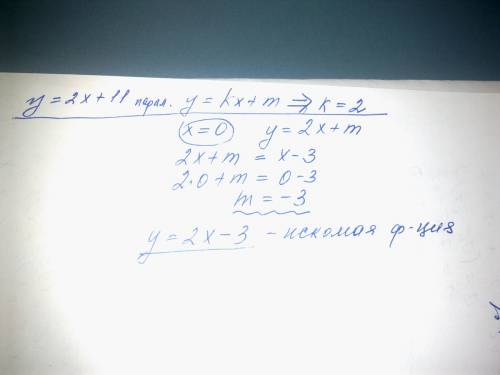 y = 2x + 11 парал. y = kx + m ⇒ k = 2
x = 0 y = 2x + m
2x + m = x - 3
2·0 + m = 0 - 3
m = -3
y = 2x - 3 - искомая ф-ция